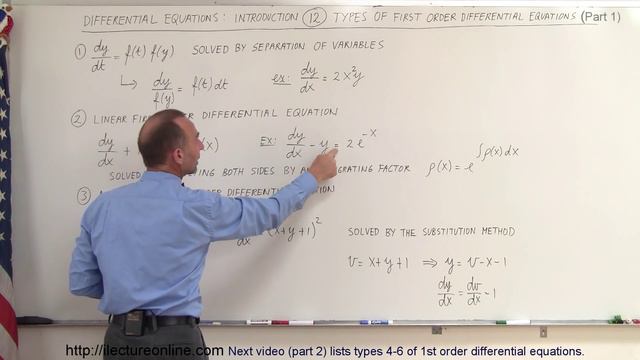 DIFFERENTIAL EQUATIONS: INTRODUCTION 12 TYPES OF FIRST ORDER DIFFERENTIAL EQUATIONS (Part 1)
① dy/dt = f(t) f(y) SOLVED BY SEPARATION OF VARIABLES
↳ dy/f(y) = f(t) dt ex: dy/dx = 2x²y
② LINEAR ORDER DIFFERENTIAL EQUATION
dy/dx + (x) EX: dy/dx - y = 2e^-x
SOLVED BOTH SIDES BY AN INTEGRATING FACTOR ρ(x) = e^∫ρ(x)dx
③ DIFFERENTIAL EQUATION
dx (x+y+1)² SOLVED BY THE SUBSTITUTION METHOD
v = x+y+1 ⟹ y = v-x-1
dy/dx = dv/dx - 1
http://ilectureonline.com Next video (part 2) lists types 4-6 of 1st order differential equations.